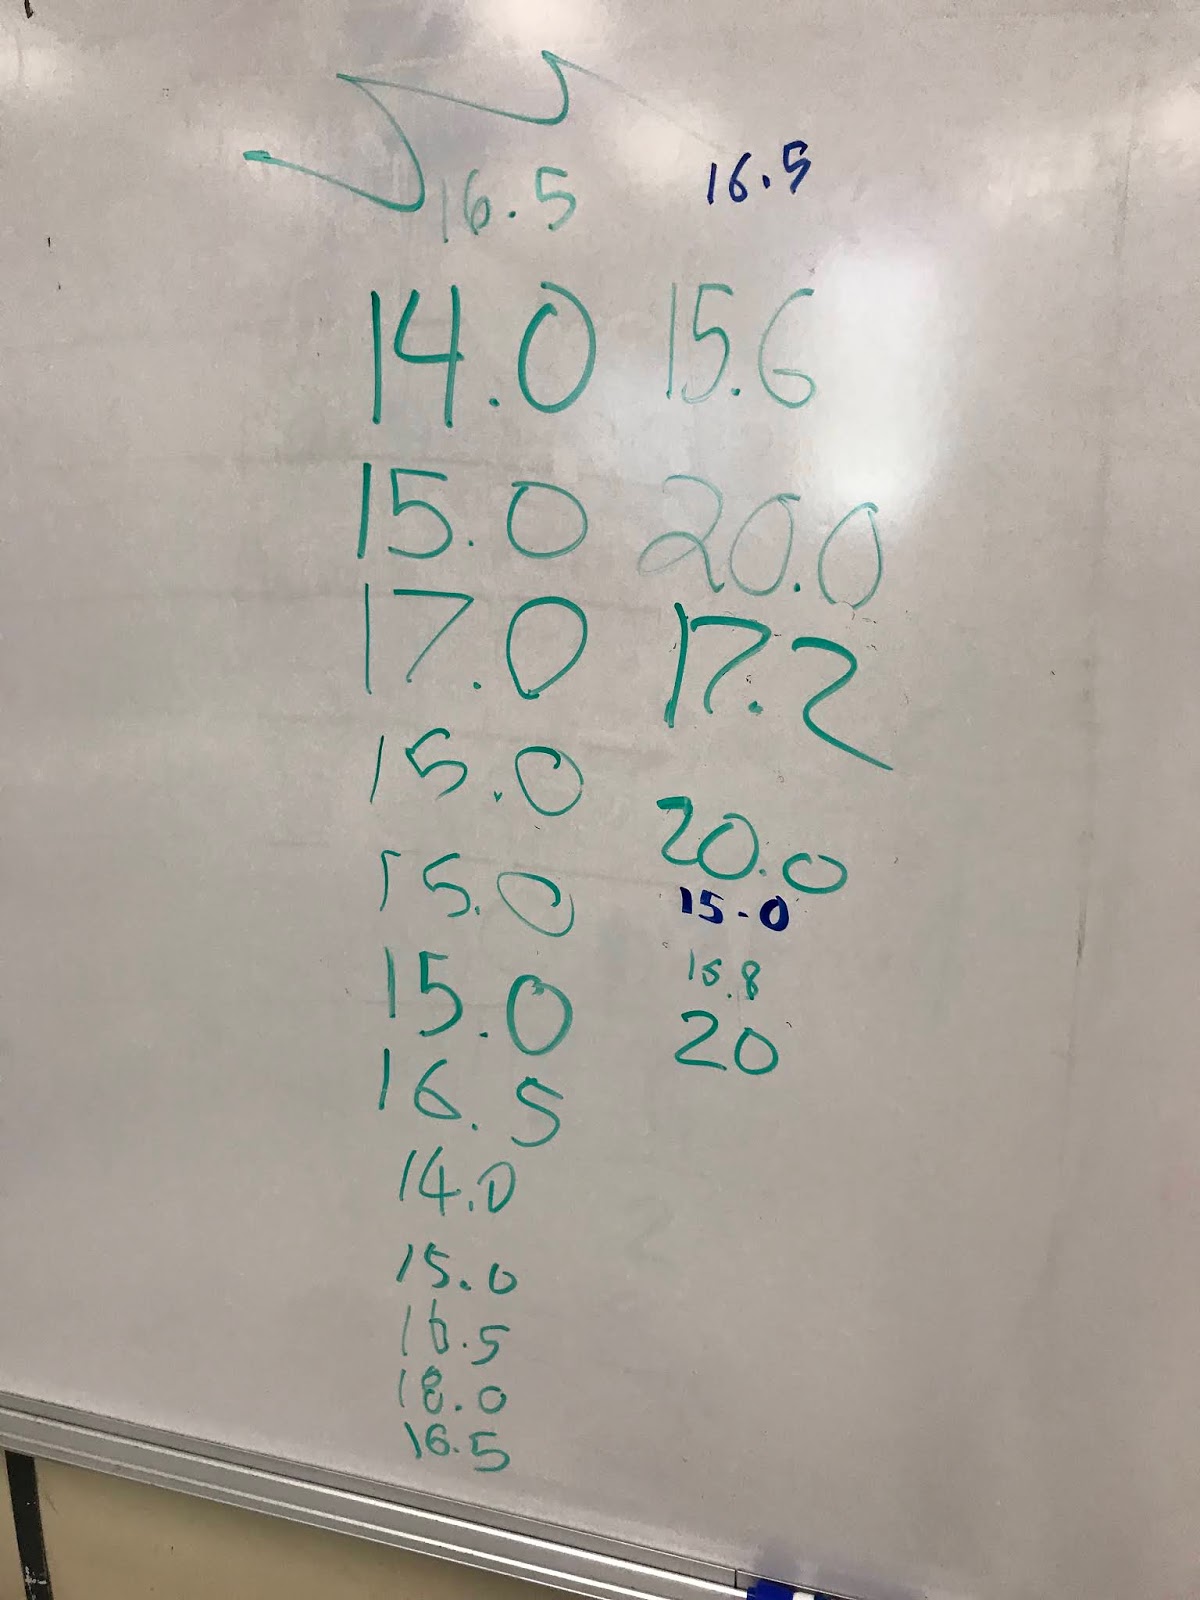 16.5
14.0
15.0
17.0
15.0
15.0
15.0
16.5
14.0
15.0
16.5
18.0
16.5
16.5
15.6
20.0
17.2
20.0
15.0
15.8
20